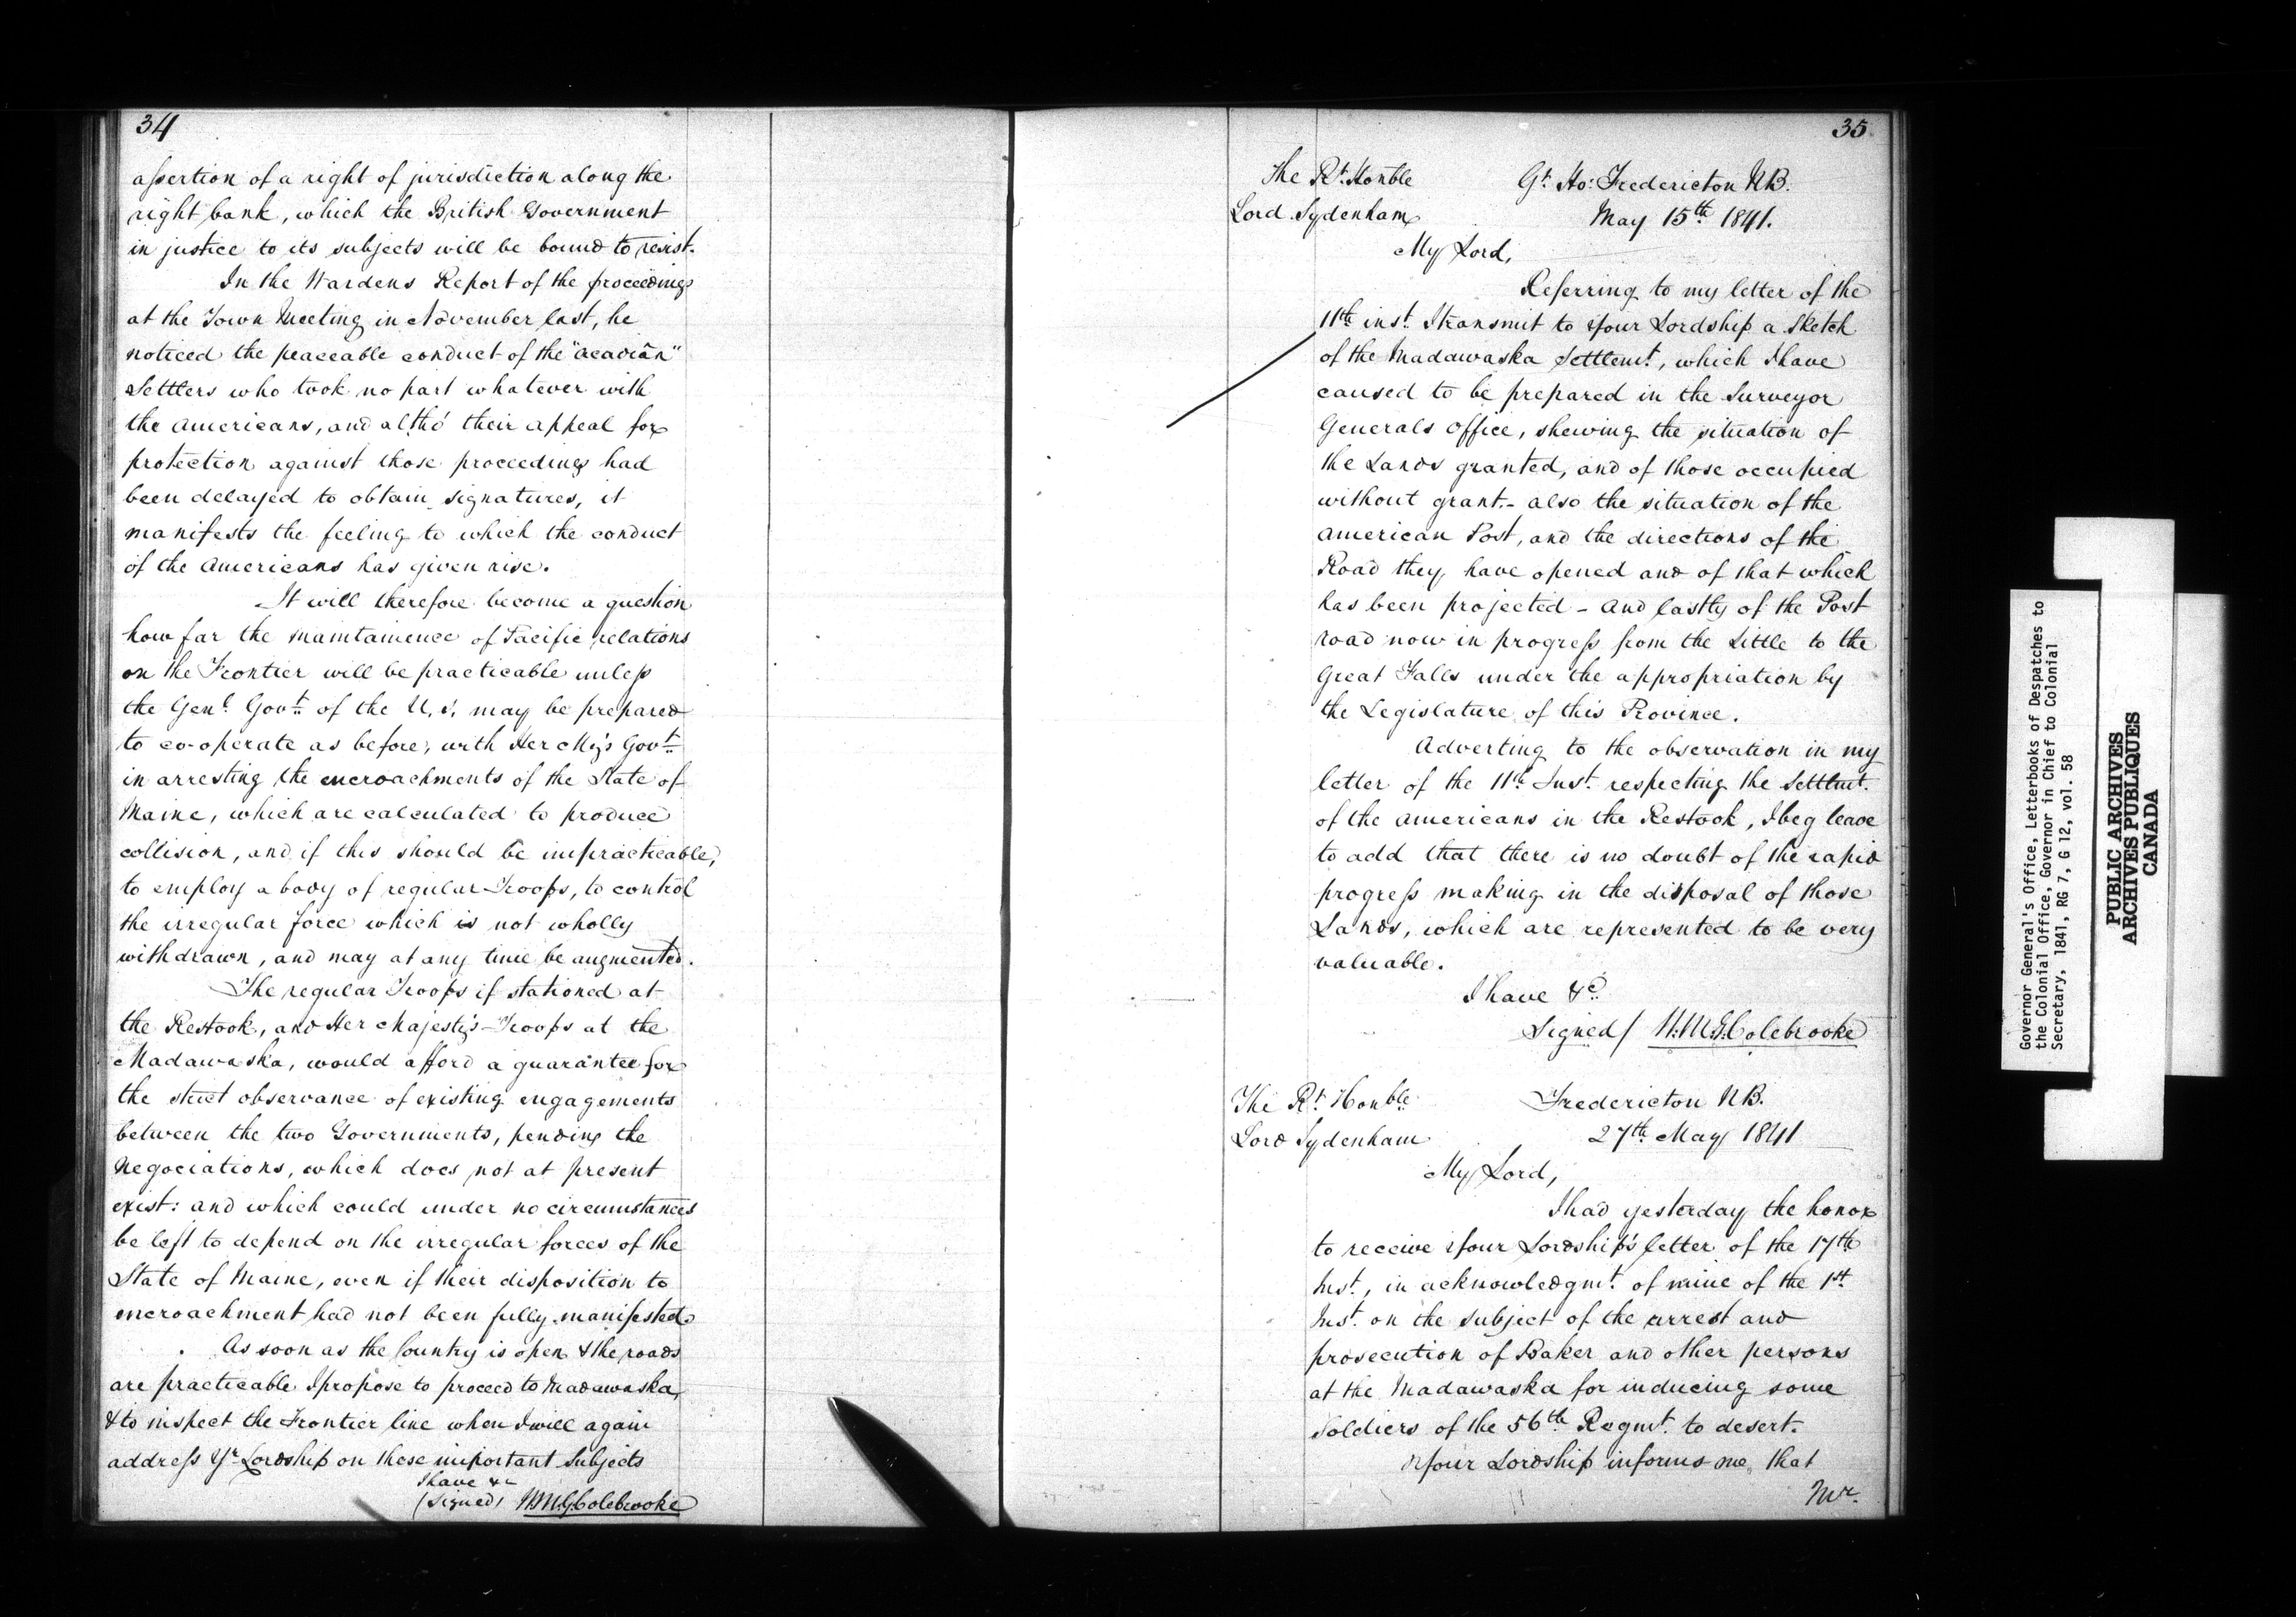 34
assertion of a right of jurisdiction along the
right bank, which the British Government
in justice to its subjects will be bound to resist.
In the Wardens Report of the proceedings
at the Town Meeting in November last, he
noticed the peaceable conduct of the "Acadian"
Settlers who took no part whatever with
the Americans, and altho' their appeal for
protection against those proceedings had
been delayed to obtain signatures, it
manifests the feeling to which the conduct
of the Americans has given rise.
It will therefore become a question
how far the maintainence of Pacific relations
on the Frontier will be practicable unless
the Genl. Govt. of the U.S. may be prepared
to co-operate as before, with Her My's Govt.
in arresting the encroachments of the State of
Maine, which are calculated to produce
collision, and if this should be impracticable,
to employ a body of regular Troops, to control
the irregular force which is not wholly
withdrawn, and may at any time be augmented.
The regular Troops if stationed at
the Restook, and Her Majesty's Troops at the
Madawaska, would afford a guarantee for
the strict observance of existing engagements
between the two Governments, pending the
Negociations, which does not at present
exist: and which could under no circumstances
be left to depend on the irregular forces of the
State of Maine, even if their disposition to
encroachment had not been fully manifested.
As soon as the Country is open & the roads
are practicable I propose to proceed to Madawaska,
& to inspect the Frontier line when I will again
address Yr. Lordship on these important Subjects
I have &c
(Signed) W.M.G. Colebrooke
35
The Rt. Honble
Lord Sydenham
Gt. Ho: Fredericton N.B.
May 15th 1841.
My Lord,
Referring to my letter of the
11th inst. I transmit to Your Lordship a Sketch
of the Madawaska Settlemt., which I have
caused to be prepared in the Surveyor
Generals Office, shewing the situation of
the Lands granted, and of those occupied
without grant. - also the situation of the
American Post, and the directions of the
Road they have opened and of that which
has been projected - and lastly of the Post
road now in progress from the Little to the
Great Falls under the appropriation by
the Legislature of this Province.
Adverting to the observation in my
letter of the 11th Inst. respecting the Settlmt.
of the Americans in the Restook, I beg leave
to add that there is no doubt of the rapid
progress making in the disposal of those
Lands, which are represented to be very
valuable.
I have &c.
Signed/ W.M.G. Colebrooke
The Rt. Honble
Lord Sydenham
Fredericton N.B.
27th May 1841
My Lord,
I had yesterday the honor
to receive Your Lordship's letter of the 17th
Inst., in acknowledgmt. of mine of the 1st.
Inst. on the subject of the arrest and
prosecution of Baker and other persons
at the Madawaska for inducing some
Soldiers of the 56th Regmt. to desert.
Your Lordship informs me, that
Mr.
Governor General's Office, Letterbooks of Despatches to
the Colonial Office, Governor in Chief to Colonial
Secretary, 1841, RG 7, G 12, vol. 58
PUBLIC ARCHIVES
ARCHIVES PUBLIQUES
CANADA